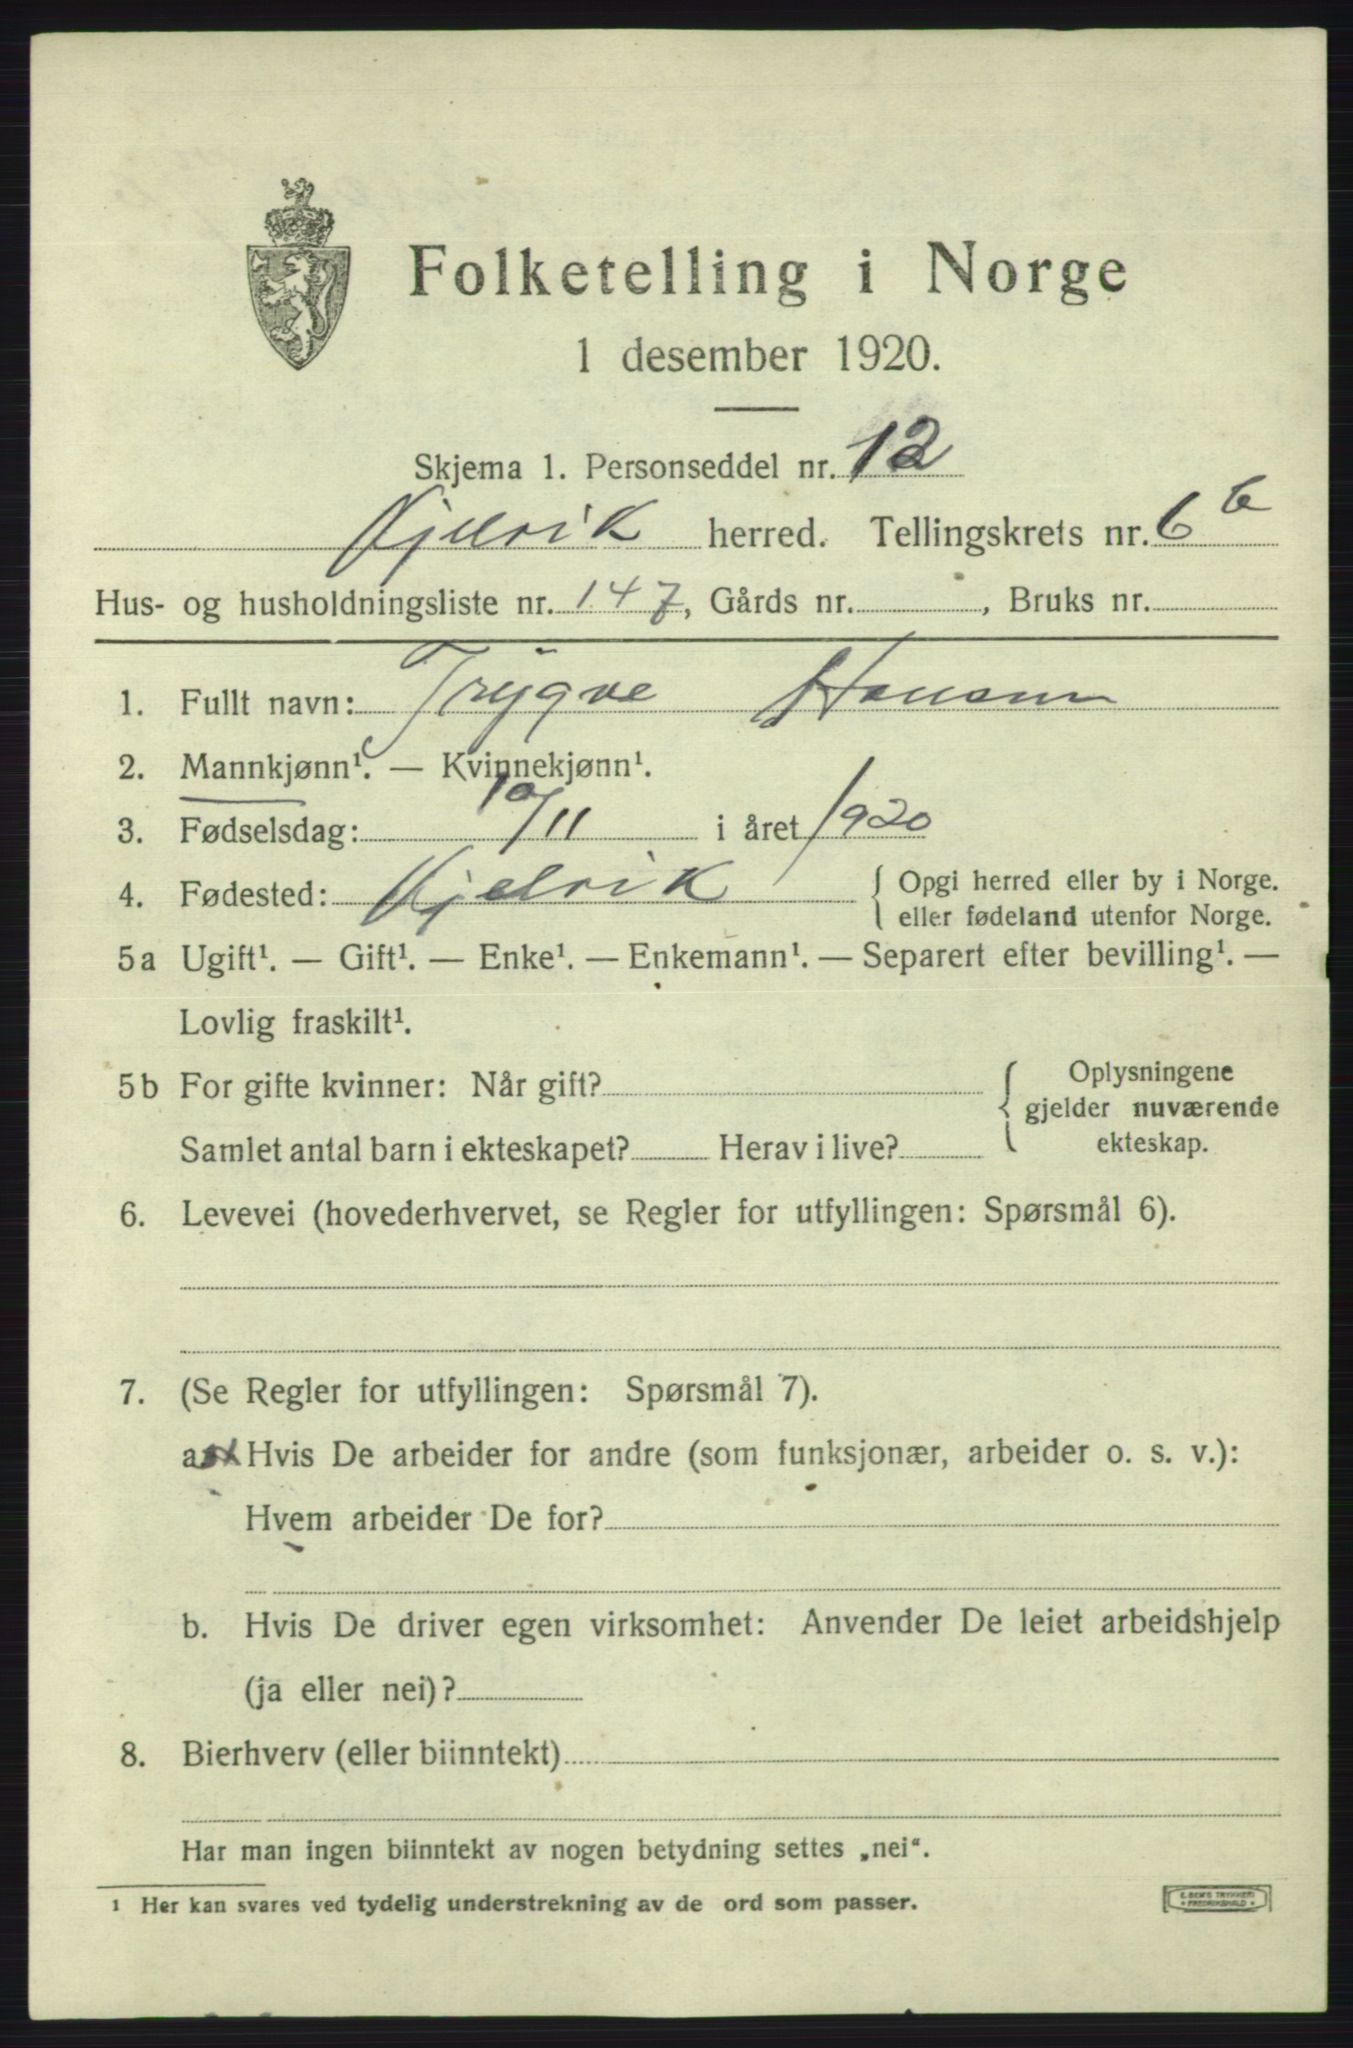 Folketelling i Norge
1 desember 1920.
Skjema 1. Personseddel nr. 12
Kjelvik herred. Tellingskrets nr. 6 b
Hus- og husholdningsliste nr. 147, Gårds nr. , Bruks nr.
1. Fullt navn: Trygve Hansen
2. Mannkjønn¹. — Kvinnekjønn¹.
3. Fødselsdag: 10/11 i året 1920
4. Fødested: Kjelvik { Opgi herred eller by i Norge.
eller fødeland utenfor Norge.
5a Ugift¹. — Gift¹. — Enke¹. — Enkemann¹. — Separert efter bevilling¹. —
Lovlig fraskilt¹.
5b For gifte kvinner: Når gift? { Oplysningene
gjelder nuværende
Samlet antal barn i ekteskapet? Herav i live? ekteskap.
6. Levevei (hovederhvervet, se Regler for utfyllingen: Spørsmål 6).
7. (Se Regler for utfyllingen: Spørsmål 7).
a. Hvis De arbeider for andre (som funksjonær, arbeider o. s. v.):
Hvem arbeider De for?
b. Hvis De driver egen virksomhet: Anvender De leiet arbeidshjelp
(ja eller nei)?
8. Bierhverv (eller biinntekt)
Har man ingen biinntekt av nogen betydning settes „nei“.
¹ Her kan svares ved tydelig understrekning av de ord som passer.
E. SEM'S TRYKKERI
FREDRIKSHALD